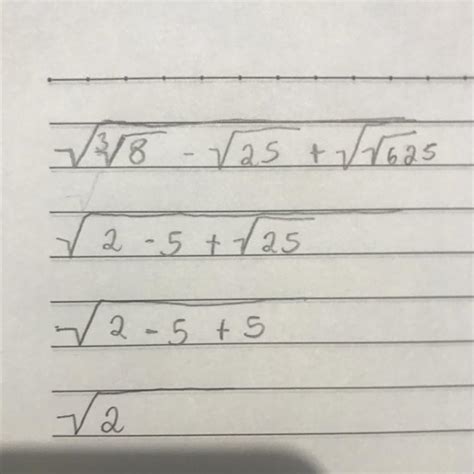 √(∛8 - √25 + √√625)
√(2 - 5 + √25)
√(2 - 5 + 5)
√2